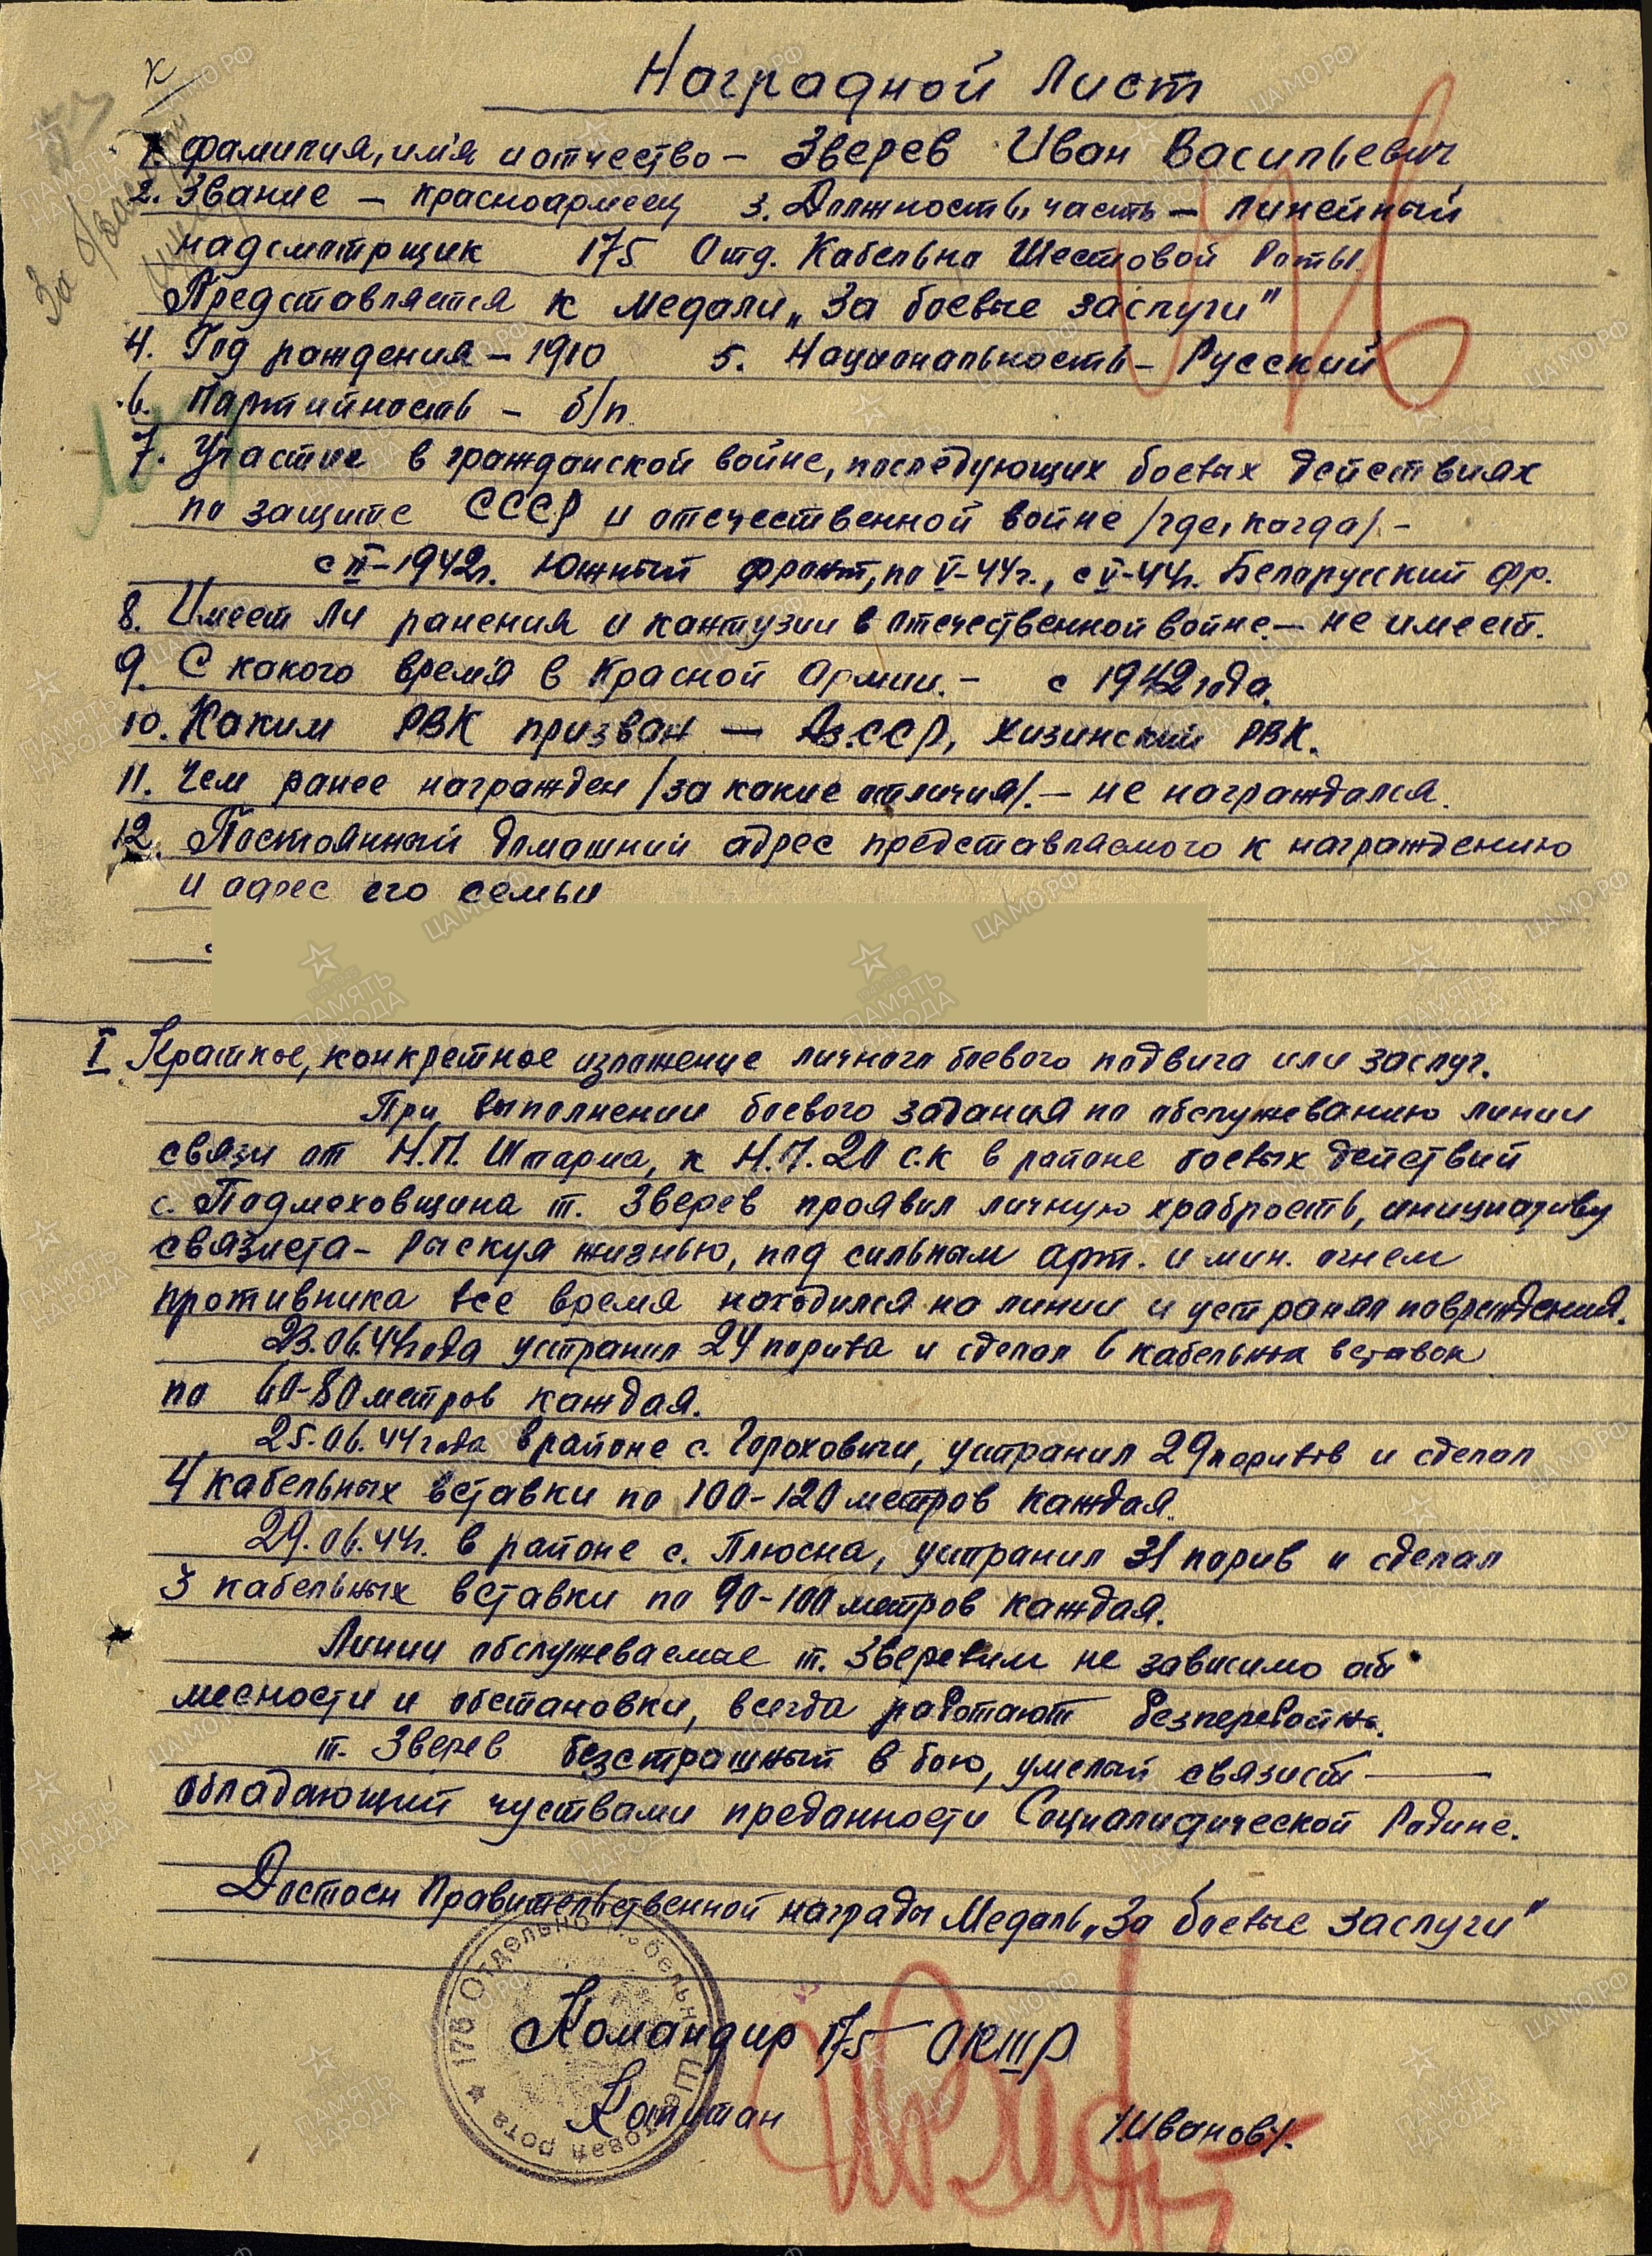 Наградной Лист
1. фамилия, имя и отчество – Зверев Иван Васильевич
2. Звание – красноармеец 3. Должность, часть – линейный
надсмотрщик 175 Отд. Кабельно Шестовой Роты.
Представляется к медали „За боевые заслуги"
4. Год рождения – 1910 5. Национальность – Русский
6. Партийность – б/п.
7. Участие в гражданской войне, последующих боевых действиях
по защите СССР и отечественной войне /где, когда/. –
1942г. Южный фронт, по V-44г., с V-44г. Беларусский фр.
8. Имеет ли ранения и кантузии в отечественной войне. – не имеет.
9. С какого время в Красной Армии. – с 1942 года.
10. Каким РВК призван — Аз.ССР, Хизинский РВК.
11. Чем ранее награжден /за какие отличия/. – не награждался.
12. Постоянный домашний адрес представляемого к награждению
и адрес его семьи
I Краткое, конкретное изложение личного боевого подвига или заслуг.
При выполнении боевого задания по обслужеванию линии
связи от Н.П. Штарма, к Н.П. 20 с.к в районе боевых действий
с. Подмеховщина т. Зверев проявил личную храбрость, инициативу
связиста – рыскуя жизнью, под сильным арт. и мин. огнем
противника все время находился на линии и устранял повреждения.
23.06.44 года устранил 24 порыва и сделал 6 кабельных вставок
по 60-80 метров каждая.
25.06.44 года в районе с. Гороховичи, устранил 29 порывов и сделал
4 кабельных вставки по 100-120 метров каждая.
29.06.44г. в районе с. Плюсна, устранил 31 порив и сделал
3 кабельных вставки по 90-100 метров каждая.
Линии обслужеваемые т. Зверевым не зависимо от
месности и обстановки, всегда работают безперебойно.
т. Зверев безстрашный в бою, умелый связист —
обладающий чуствами преданности Социалистической Родине.
Достоен Правительственной награды Медаль „За боевые заслуги"
175 Отдельно Кабельно Шестовая рота
Командир 175 ОКШР
Капитан /Иванов/.